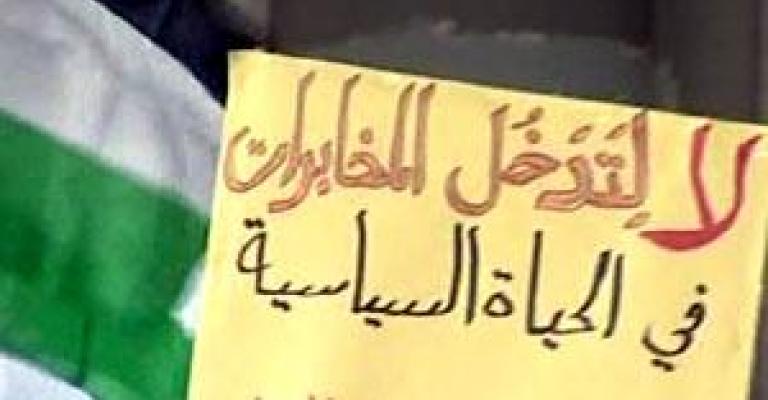 لا لِتَدَخُل المخابرات
في الحياة السياسية